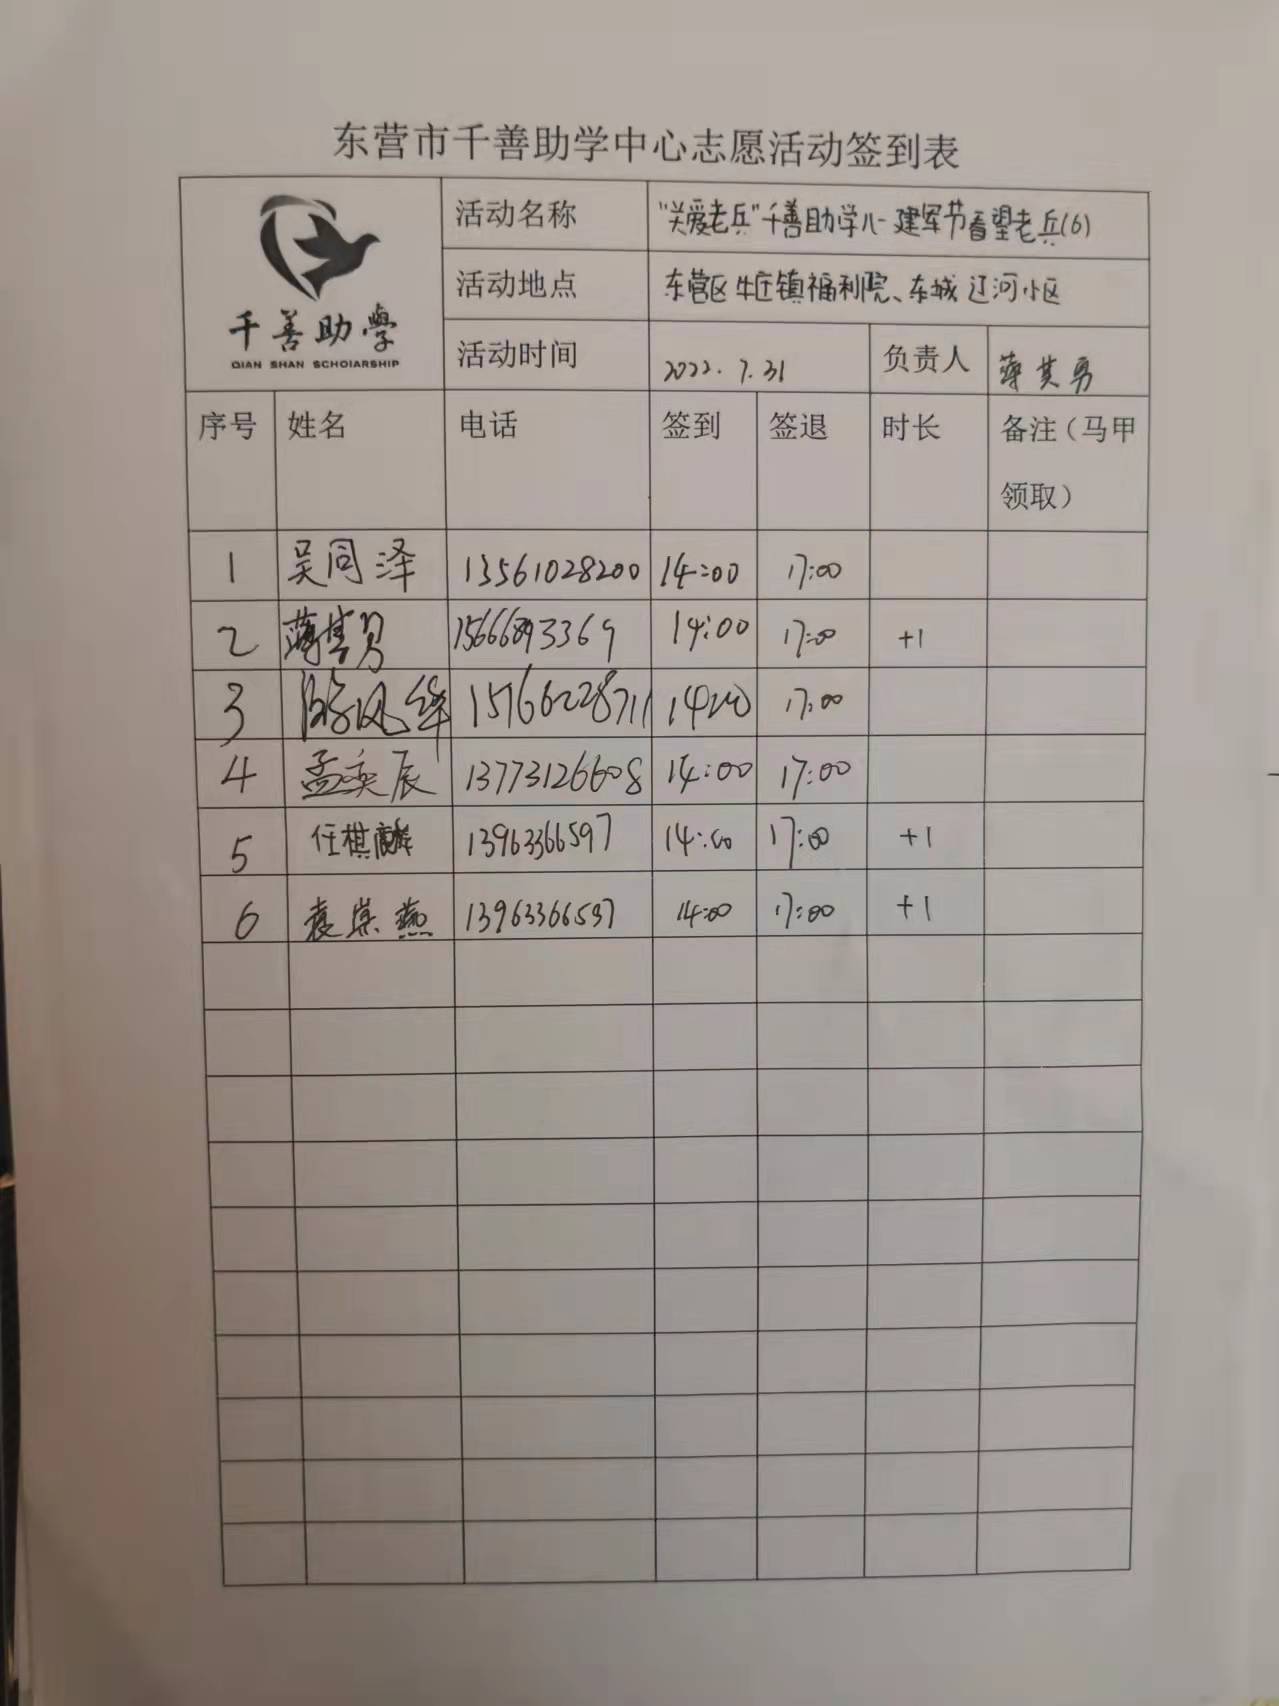 东营市千善助学中心志愿活动签到表
千善助學
QIAN SHAN SCHOIARSHIP
活动名称 "关爱老兵"千善助学八一建军节看望老兵(6)
活动地点 东营区牛庄镇福利院、东城辽河小区
活动时间 2022.7.31 负责人 薄其勇
序号 姓名 电话 签到 签退 时长 备注（马甲
领取）
1 吴同泽 13561028200 14:00 17:00
2 薄其勇 15666893369 14:00 17:00 +1
3 15166228711 17:00
4 孟奕辰 13773126608 14:00 17:00
5 任棋麟 13963366597 14:00 17:00 +1
6 袁崇燕 13963366597 14:00 17:00 +1